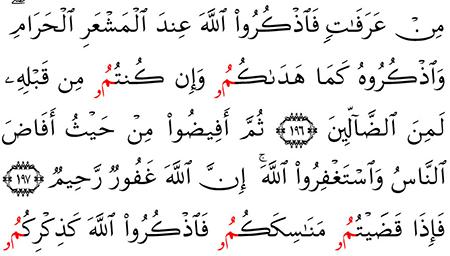 مِنۡ عَرَفَٰتٖ فَٱذۡكُرُواْ ٱللَّهَ عِندَ ٱلۡمَشۡعَرِ ٱلۡحَرَامِ
وَٱذۡكُرُوهُ كَمَا هَدَىٰكُمُۥ وَإِن كُنتُمُۥ مِن قَبۡلِهِۦ
لَمِنَ ٱلضَّآلِّينَ ١٩٦ ثُمَّ أَفِيضُواْ مِنۡ حَيۡثُ أَفَاضَ
ٱلنَّاسُ وَٱسۡتَغۡفِرُواْ ٱللَّهَۚ إِنَّ ٱللَّهَ غَفُورٞ رَّحِيمٞ ١٩٧
فَإِذَا قَضَيۡتُمُۥ مَنَٰسِكَكُمُۥ فَٱذۡكُرُواْ ٱللَّهَ كَذِكۡرِكُمُۥ